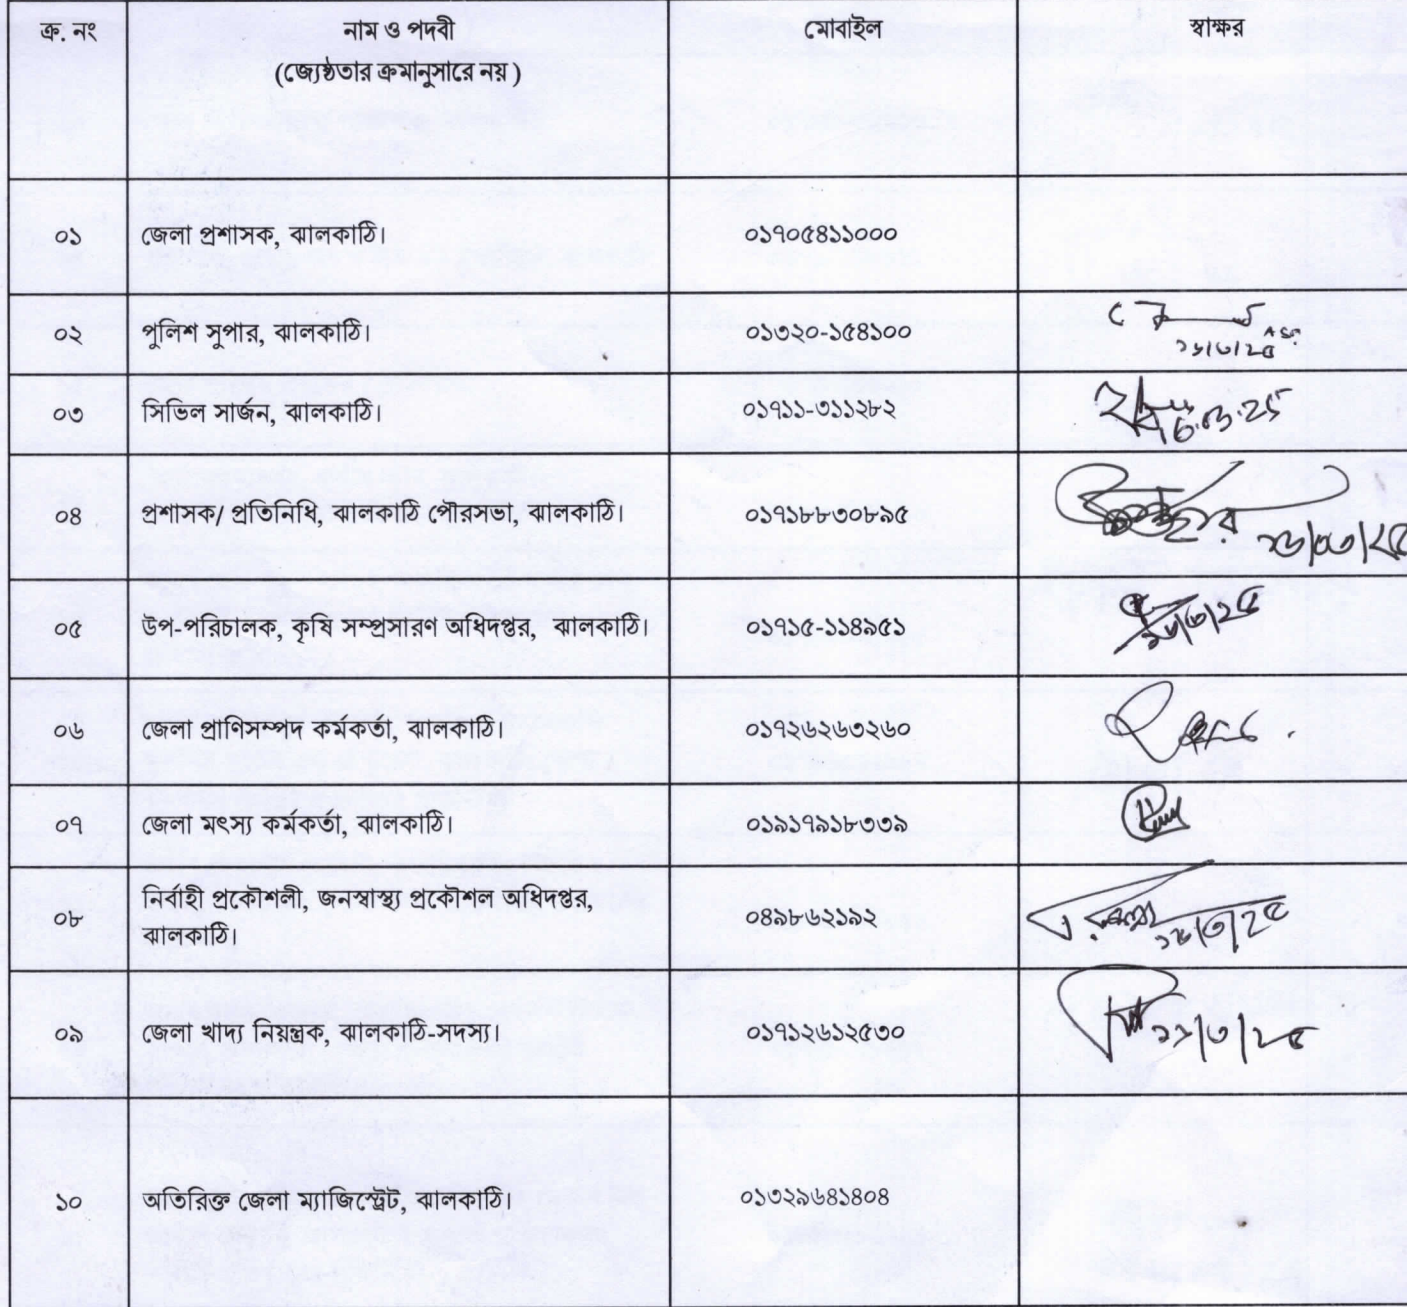 ক্র. নং নাম ও পদবী মোবাইল স্বাক্ষর
(জ্যেষ্ঠতার ক্রমানুসারে নয় )
০১ জেলা প্রশাসক, ঝালকাঠি। ০১৭০৫৪১১০০০
০২ পুলিশ সুপার, ঝালকাঠি। ০১৩২০-১৫৪১০০
১৬/৩/২৫
০৩ সিভিল সার্জন, ঝালকাঠি। ০১৭১১-৩১১২৮২
০৪ প্রশাসক/ প্রতিনিধি, ঝালকাঠি পৌরসভা, ঝালকাঠি। ০১৭১৮৮৩০৮৯৫ ১৬/০৩/২৫
০৫ উপ-পরিচালক, কৃষি সম্প্রসারণ অধিদপ্তর, ঝালকাঠি। ০১৭১৫-১১৪৯৫১ ১৬/৩/২৫
০৬ জেলা প্রাণিসম্পদ কর্মকর্তা, ঝালকাঠি। ০১৭২৬২৬৩২৬০
০৭ জেলা মৎস্য কর্মকর্তা, ঝালকাঠি। ০১৯১৭৯১৮৩৩৯
০৮ নির্বাহী প্রকৌশলী, জনস্বাস্থ্য প্রকৌশল অধিদপ্তর, ০৪৯৮৬২১৯২ ১৬/৩/২৫
ঝালকাঠি।
০৯ জেলা খাদ্য নিয়ন্ত্রক, ঝালকাঠি-সদস্য। ০১৭১২৬১২৫৩০ ১৬/৩/২৫
১০ অতিরিক্ত জেলা ম্যাজিস্ট্রেট, ঝালকাঠি। ০১৩২৯৬৪১৪০৪